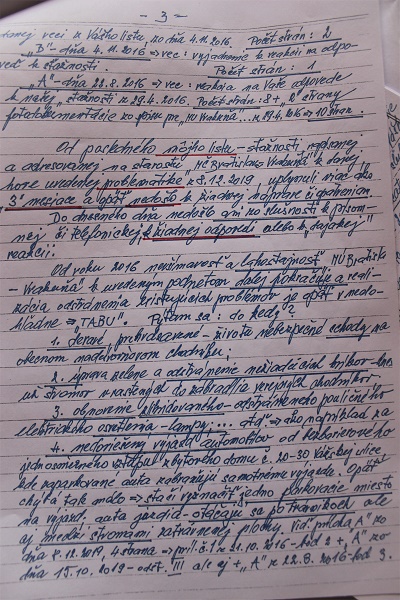 - 3 -
danej veci k Vášho listu, zo dňa 4.11.2016. Počet strán: 2
"B" - dňa 4.11.2016 => vec: vyjadrenie k reakcii na odpo-
veď k sťažnosti. Počet strán: 1
"A" - dňa 22.8.2016 => vec: reakcia na Vaše odpovede
k našej sťažnosti z 29.4.2016. Počet strán: 8 + 2 strany
fotodokumentácie zo spisu pre MÚ Vrakuňa... z 29.4.2016 => 10 strán.
Od posledného môjho listu - sťažnosti, napísanej
a adresovanej na starostu MČ Bratislava Vrakuňa k danej
hore uvedenej problematike z 8.12.2019 uplynuli viac ako
3 mesiace a opäť nedošlo k žiadnej náprave či
Do dnešného dňa nedošlo ani zo slušnosti k písom-
nej či telefonickej k žiadnej odpovedi alebo k "dajakej"
reakcii!
Od roku 2016 nevšímavosť a ľahostajnosť MÚ Bratisla-
Vrakuňa k uvedeným podnetom ďalej pokračuje a reali-
zácia odstránenia existujúcich problémov je opäť v nedo-
hľadne => "TABU". Pýtam sa: do kedy?
1. Terasa, prehrdzavené - životu nebezpečné schody na
obecnom nadúrovňovom chodníku;
2. úprava zelene a odstránenie nežiadúcich kríkov
stromov vrastených do zábradlia verejných chodníkov.
3. obnovenie odstráneného pouličného
elektrického osvetlenia - lampy;... atď. => ako napríklad za
4. nedoriešený výjazd automobilov od
jednosmerného vstupu z bytového domu č. 20-30 Vážskej ulice
kde zaparkované autá zabraňujú samotnému výjazdu. Opäť
chýba tak málo => stačí vyznačiť jedno parkovacie miesto
na výjazd. autá jazdia - otáčajú sa po trávnikoch ale
aj medzi stromami zatrávnenej plochy. Viď. príloha "A" zo
dňa 8.12.2019, 4 strana => príl. č.1 z 21.10.2016 - bod 2 + "A" zo
dňa 15.10.2019 - odst. III ale aj + "A" z 22.8.2016 - bod 3.